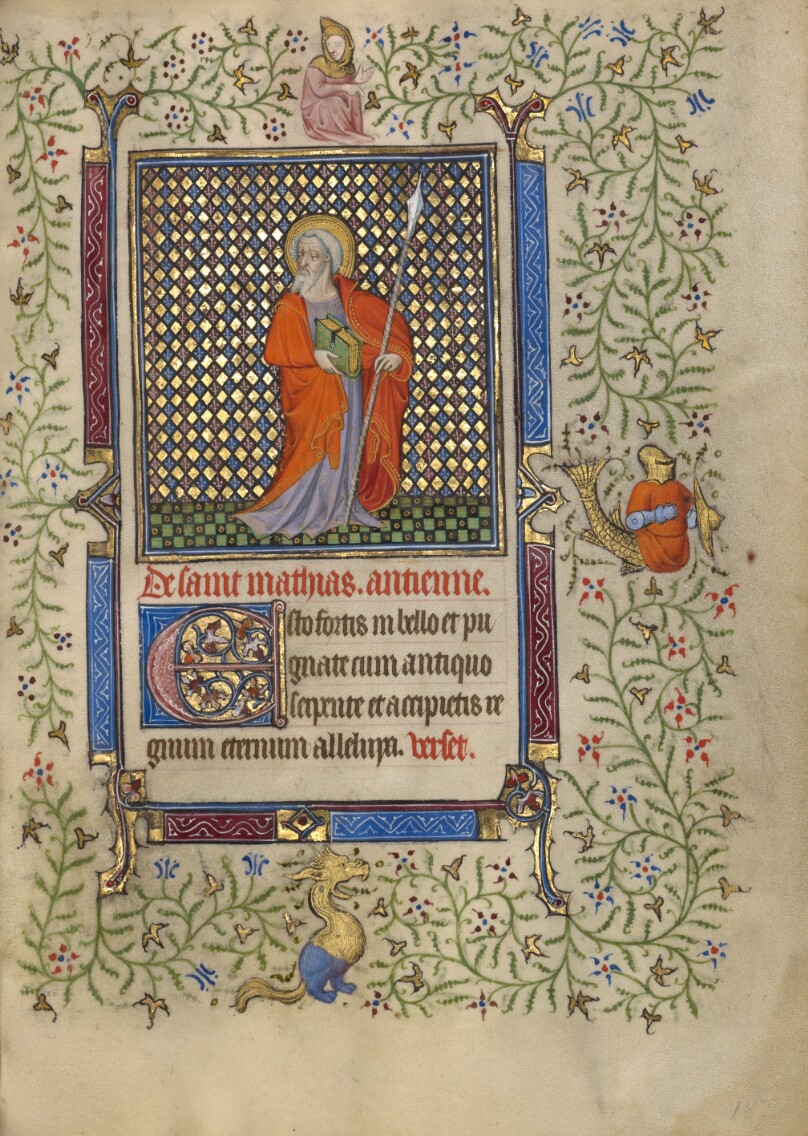 De saint mathias. antienne.
Esto fortis in bello et pu
gnate cum antiquo
serpente et accipietis re
gnum eternum alleluya. verset.
187